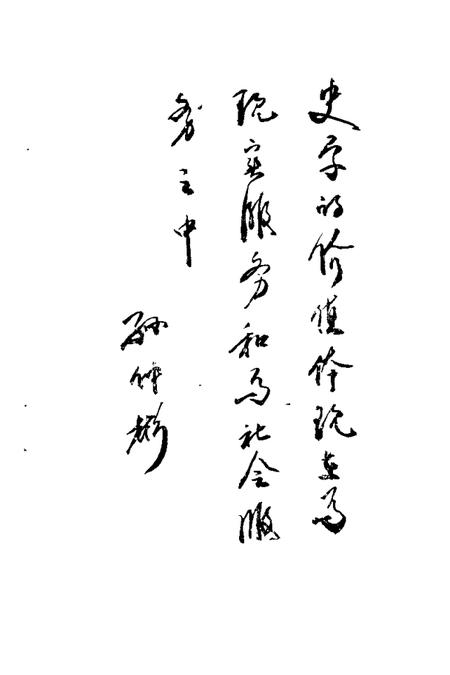 史学的价值体现在为
现实服务和为社会服
务之中
孙仲彬